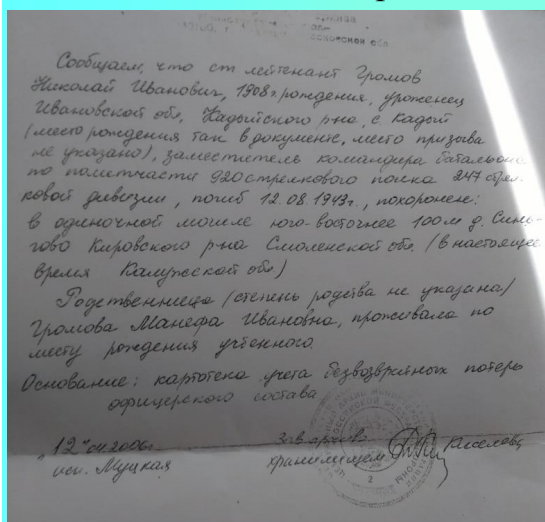 Сообщаем, что ст лейтенант Громов
Николай Иванович, 1908 г рождения, уроженец
Ивановской обл, Кадыйского р-на, с. Кадый
(место рождения так в документе, место призыва
не указано), заместитель командира батальона
по политчасти 920 стрелкового полка 247 стрел-
ковой дивизии, погиб 12.08 1943г., похоронен:
в одиночной могиле юго-восточнее 100м д. Сини-
гово Кировского р-на Смоленской обл. (в настоящее
время Калужской обл.)
Родственница (степень родства не указана)
Громова Манефа Ивановна, проживала по
месту рождения учтенного.
Основание: картотека учета безвозвратных потерь
офицерского состава
"12" 04 2006г. Зав архиво-
исп. Муцкая хранилищем Киселева